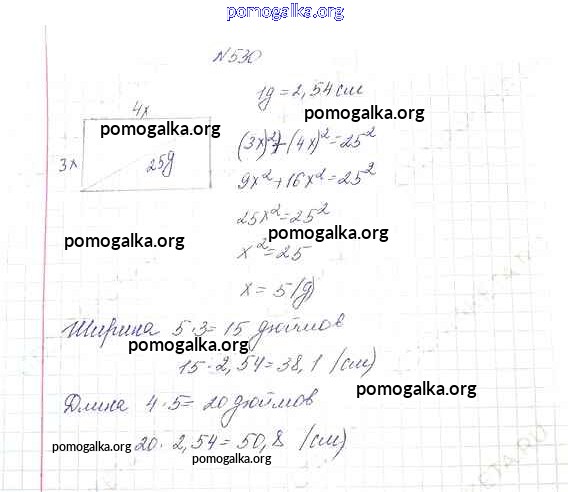 pomogalka.org
N530
1g = 2,54 см
4x
pomogalka.org
(3x)²+(4x)²=25²
3x
25g
9x²+16x²=25²
25x²=25²
pomogalka.org
pomogalka.org
x²=25
x = 5 (g)
Ширина 5·3=15 дюймов
pomogalka.org
15·2,54=38,1 (см)
pomogalka.org
Длина 4·5= 20 дюймов
pomogalka.org
20·2,54=50,8 (см)
pomogalka.org